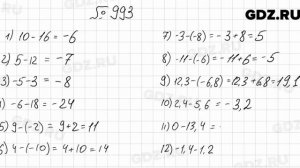 GDZ.RU
№ 993
1) 10-16 = -6
2) 5-12 = -7
3) -5-3 = -8
4) -6-18 = -24
5) 9-(-2) = 9+2 = 11
6) 4-(-10) = 4+10 = 14
7) -3-(-8) = -3+8 = 5
8) -11-(-6) = -11+6 = -5
9) 12,3-(-6,8) = 12,3+6,8 = 19,1
10) 2,4-5,6 = -3,2
11) 0-13,4 =
12) -1,4-1,2
GDZ.RU